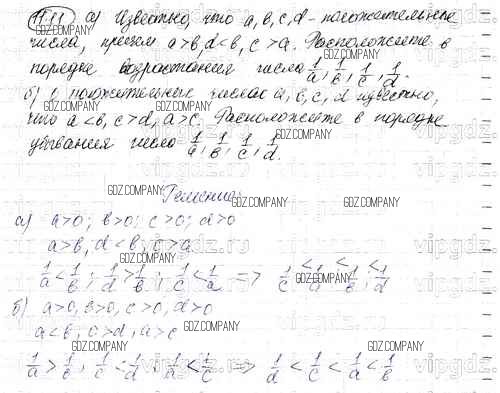 11.11 а) Известно, что a, b, c, d - положительные
числа, причем a > b, d < b, c > a. Расположите в
порядке возрастания числа 1/a, 1/b, 1/c, 1/d.
б) О положительных числах a, b, c, d известно,
что a < b, c > d, a > c. Расположите в порядке
убывания числа 1/a, 1/b, 1/c, 1/d.
Решение:
а) a>0; b>0; c>0; d>0
a>b, d<b, c>a
1/a < 1/b; 1/d > 1/b; 1/c < 1/a => 1/c < 1/a < 1/b < 1/d
б) a>0, b>0, c>0, d>0
a<b, c>d, a>c
1/a > 1/b; 1/c < 1/d; 1/a < 1/c => 1/d < 1/c < 1/a < 1/b